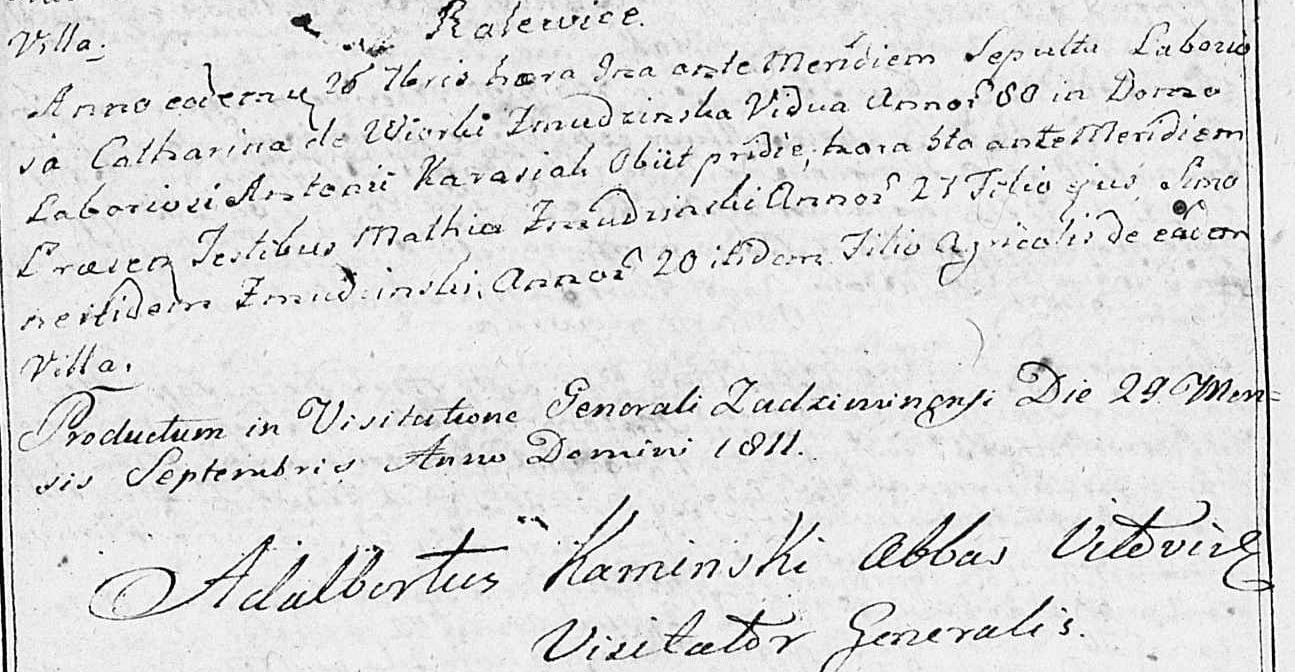 Villa.
Ralewice.
Anno eodem 26 7bris hora 3na ante Meridiem Sepulta Laborio
sa Catharina de Wiorki Zmudzinska Vidua Annor 80 in Domo
Laboriosi Antonii Karasiak Obiit pridie, hora 5ta ante Meridiem
Præsen Testibus Mathia Zmudzinski Annor 27 Filio ejus, Simo
ne itidem Zmudzinski, Annor 20 itidem Filio Agricolis de eadem
Villa.
Productum in Visitatione Generali Zadzimingsi Die 29 Men=
sis Septembris Anno Domini 1811.
Adalbertus Kaminski Abbas Vitovien
Visitator Generalis.